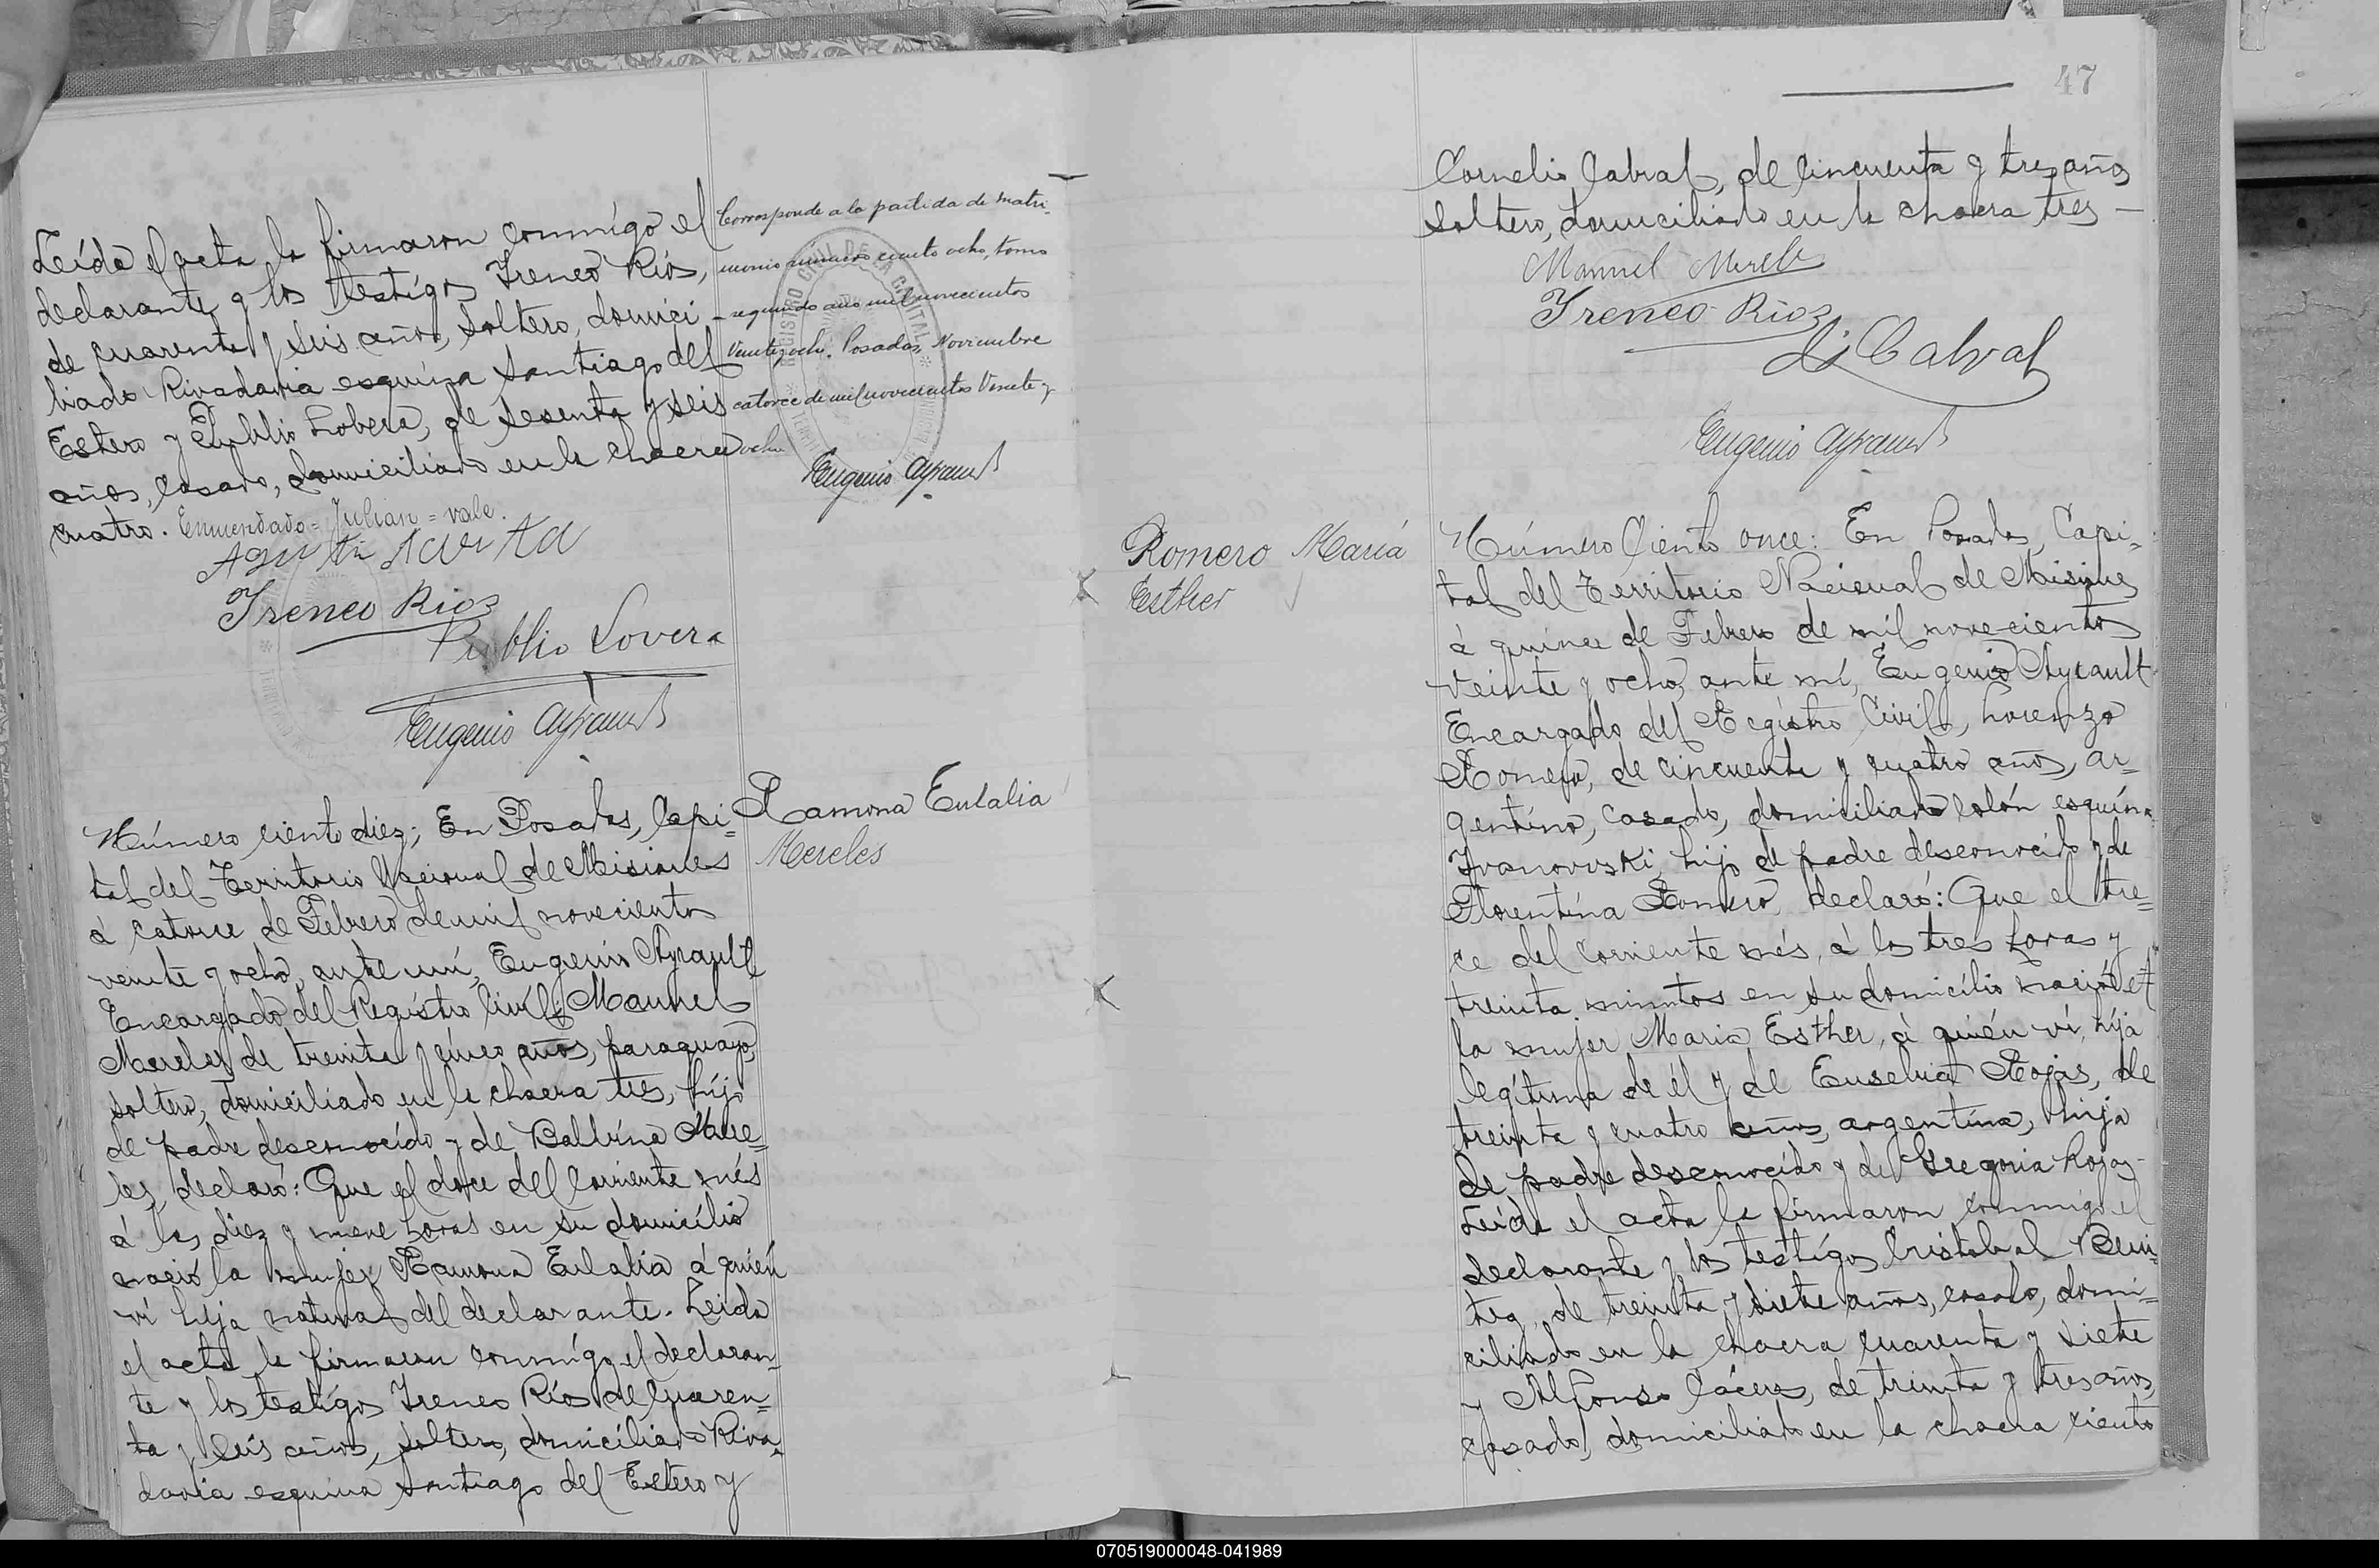 Leída el acta la firmaron conmígo el
declarante y los testígos Ireneo Ríos,
de cuarenta y seis años, soltero, domici-
liado Rivadavia esquína Santiago del
Estero y Publio Lobera, de sesenta y seis
años, casado, domiciliado en la chacra
cuatro. Enmendado = Julian = vale.
Ireneo Rios
Publio Lovera
Eugenio Ayrault
Corresponde a la partida de matri-
monio número ciento ocho, tomo
segundo año mil novecientos
veinte y ocho. Posadas, Noviembre
catorce de mil novecientos veinte y
ocho
Eugenio Ayrault
REGISTRO CIVIL DE LA CAPITAL
Ramona Eulalia
Mereles
Número ciento diez; En Posadas, Capi-
tal del Territorio Nacional de Misiones
á catorce de Febrero de mil novecientos
veinte y ocho, ante mí, Eugenio Ayrault
Encargado del Regístro Civíl, Manuel
Mereles, de treinta y cinco años, paraguayo,
soltero, domiciliado en la chacra tres, híjo
de padre desconocído y de Balbína Mere-
les, declaró: Que el doce del corriente més
á las diez y nueve horas en su domicílio
nació la mujer Ramona Eulalia á quién
ví hija natural del declarante. Leida
el acta la firmaron conmígo el declaran-
te y los testígos Ireneo Ríos de cuaren-
ta y seis años, soltero, domiciliado Riva-
davia esquina Santiago del Estero y
47
Cornelio Cabral, de cincuenta y tres años
soltero, domiciliado en la chacra tres —
Manuel Merele
Ireneo Rios
Cabral
Eugenio Ayrault
Romero María
Esther
Número Ciento once: En Posadas, Capi-
tal del Territorio Nacional de Misiones
á quince de Febrero de míl novecientos
veinte y ocho, ante mí, Eugenio Ayrault
Encargado del Regístro Civíl, Lorenzo
Romero, de cincuenta y cuatro años, ar-
gentíno, casado, domiciliado Colón esquína
Ivanovuski, hijo de padre desconocído y de
Florentína Romero, declaró: Que el tre-
ce del corriente més, á las tres horas y
treinta minutos en su domicílio nació
la mujer María Esther, á quién ví, híja
legítima de él y de Eusebia Rojas, de
treinta y cuatro años, argentína, hija
de padre desconocído y de Gregoria Rojas-
Leída el acta la firmaron conmigo el
declarante y los testígos Cristobal Bení-
tez, de treinta y siete años, casado, domi-
ciliado en la chacra cuarenta y siete
y Alfonso Cáceres, de treinta y tres años,
casado, domiciliado en la chacra ciento
070519000048-041989